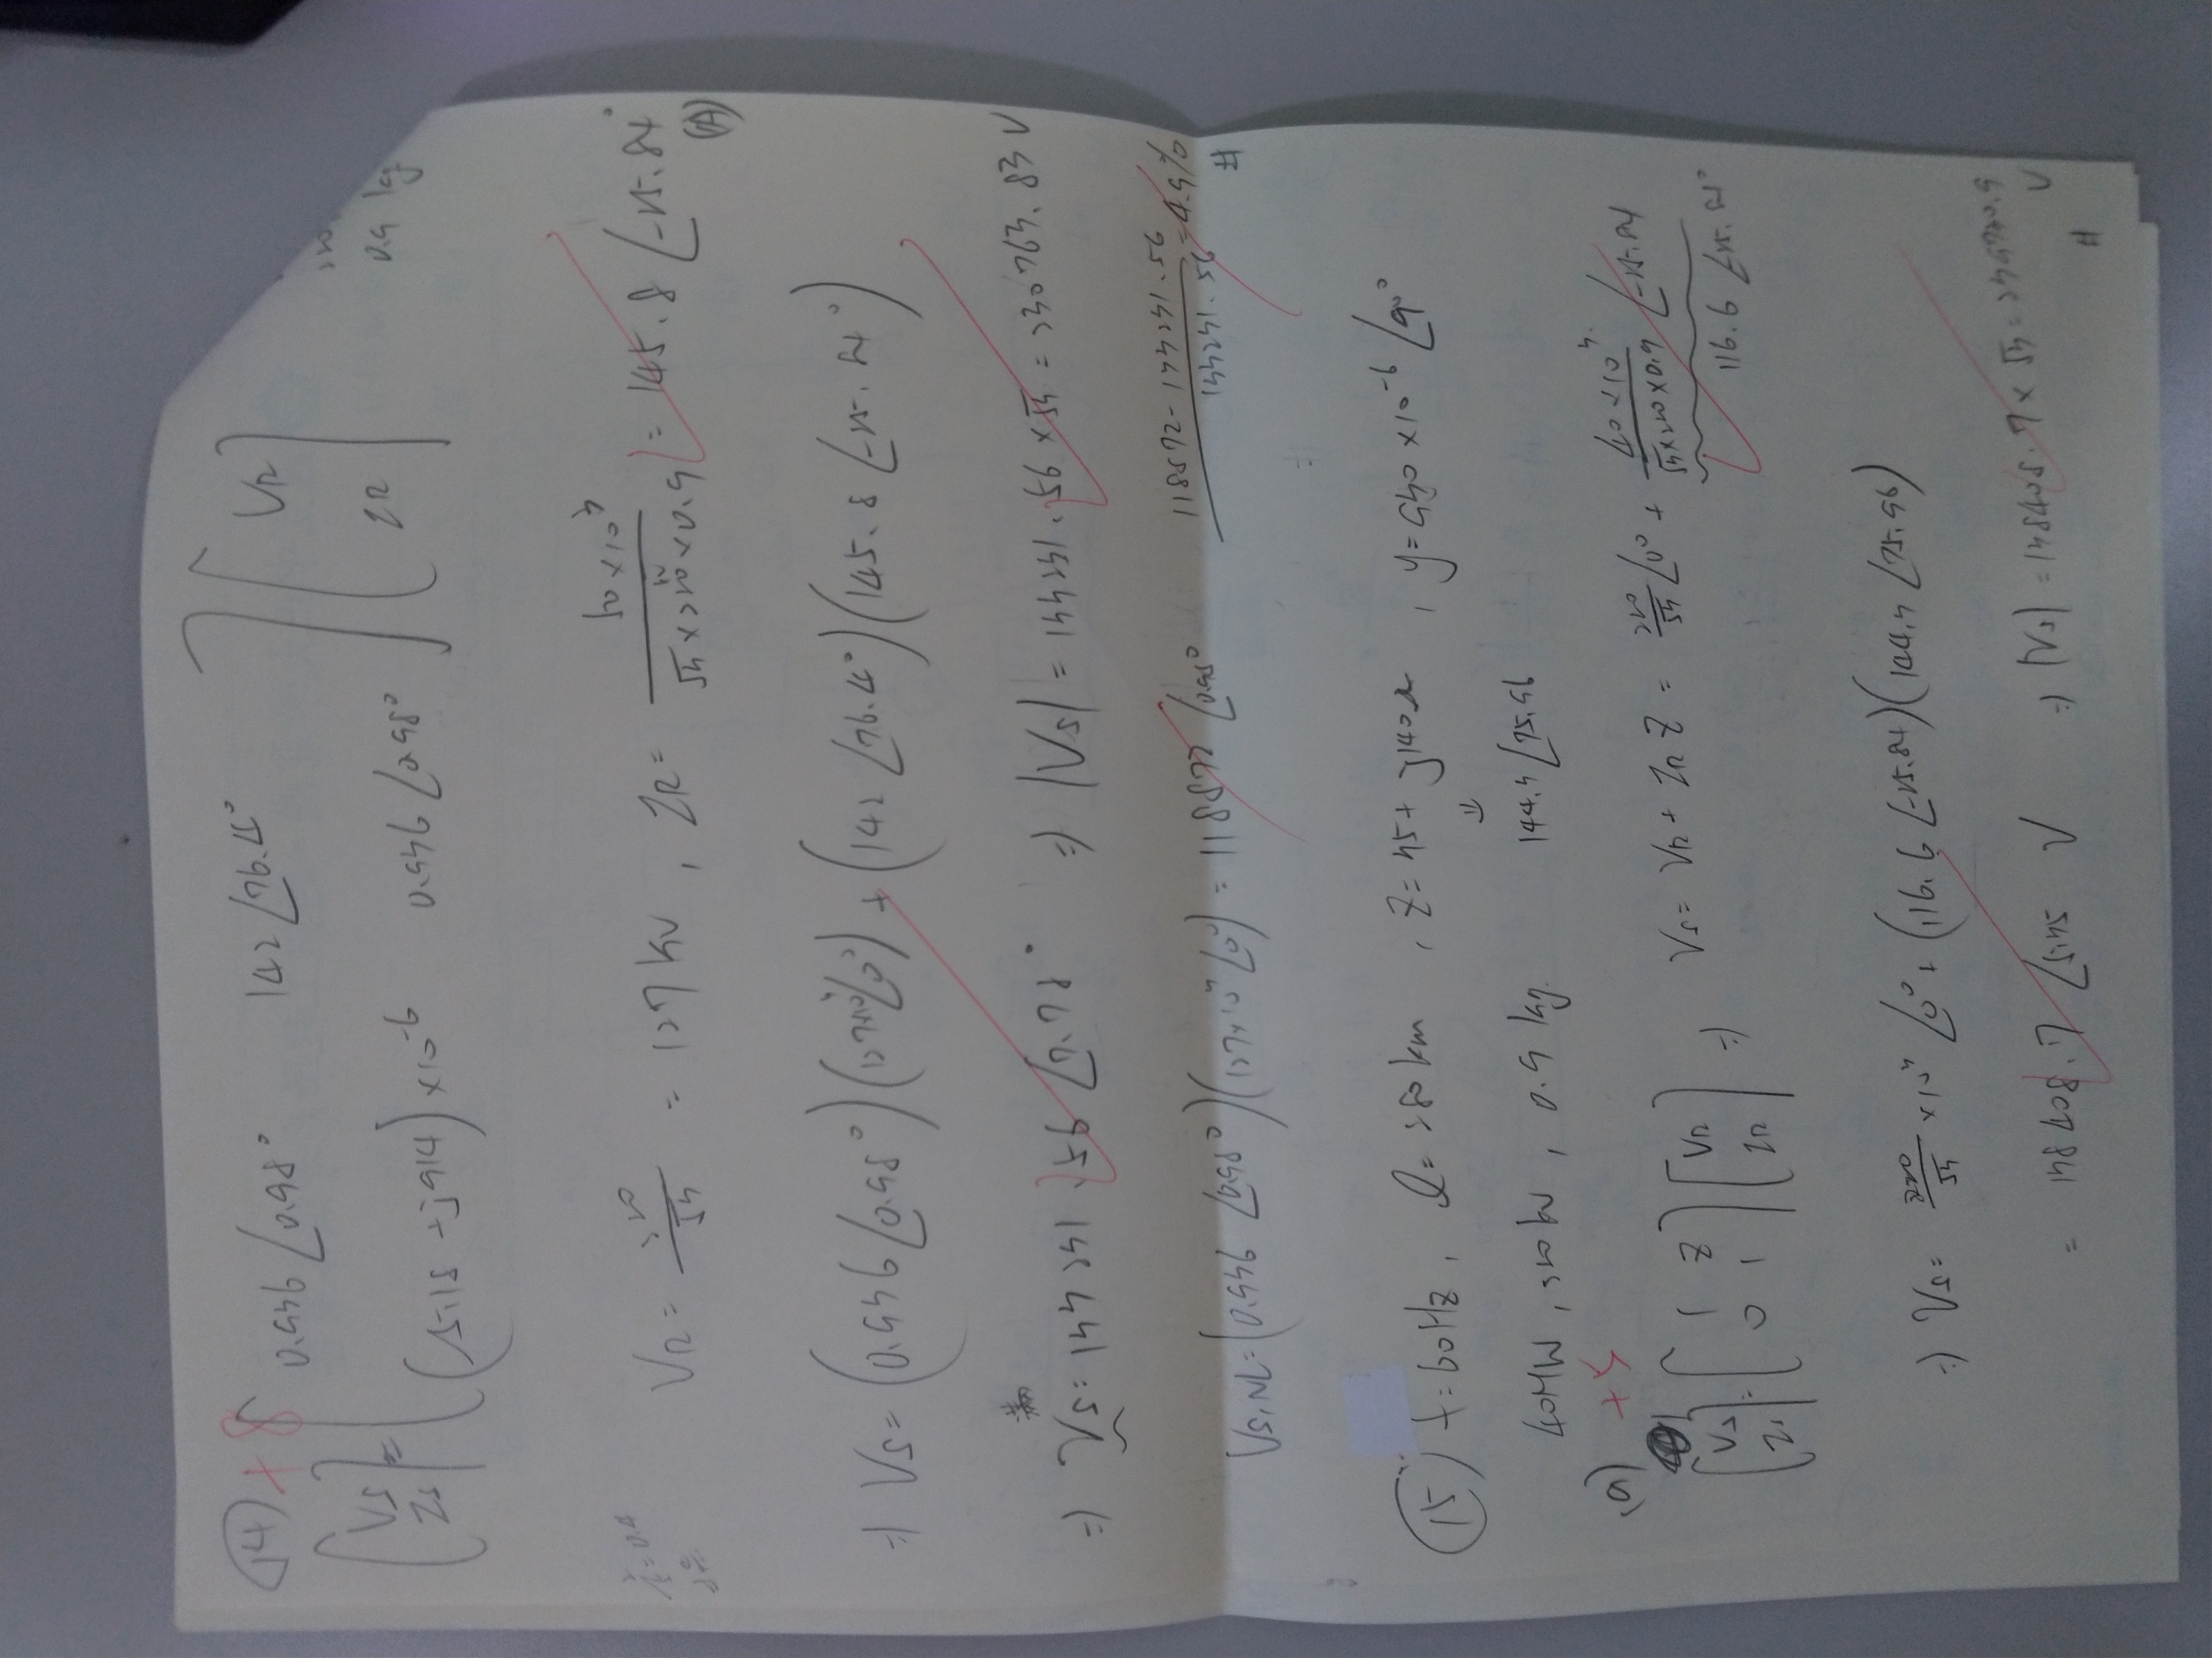 (14) +8
[Vs Is] = [0.936∠0.98° 142∠76.4° (-5.18+j914)×10⁻⁶ 0.936∠0.98°] [VR IR]
0.9 lag
VR = 220/√3 = 127 kV , IR = 50×10³/√3×220×0.9 = 145.8∠-25.84° (A)
⇒ Vs = (0.936∠0.98°)(127×10³∠0°) + (142∠76.4°)(145.8∠-25.84°)
⇒ Vs滿 = 133231.56∠7.78° ⇒ |Vs| = 133231.56×√3 = 230763.83 V
Vs,NL = (0.936∠0.98°)(127×10³∠0°) = 118872∠0.98° 118872-133231.56/133231.56 = 4.9% #
(15) f=60Hz, l=280km , Z=35+j140Ω , y=930×10⁻⁶∠90°
⇓
40MW, 220kV, 0.9 lag. 144.3∠75.96
(a) +5
[Vs Is] = [1 Z 0 1] [VR IR] ⇒ Vs = VR + IR Z = 220/√3∠0° + 40×10³/√3×220×0.9 ∠-25.84
116.6∠-25.84°
⇒ Vs = 220/√3×10³∠0° + (116.6∠-25.84)(144.3∠75.96)
= 138408.7∠5.35 V ⇒ |Vs| = 138408.7×√3 = 239730.9 V #